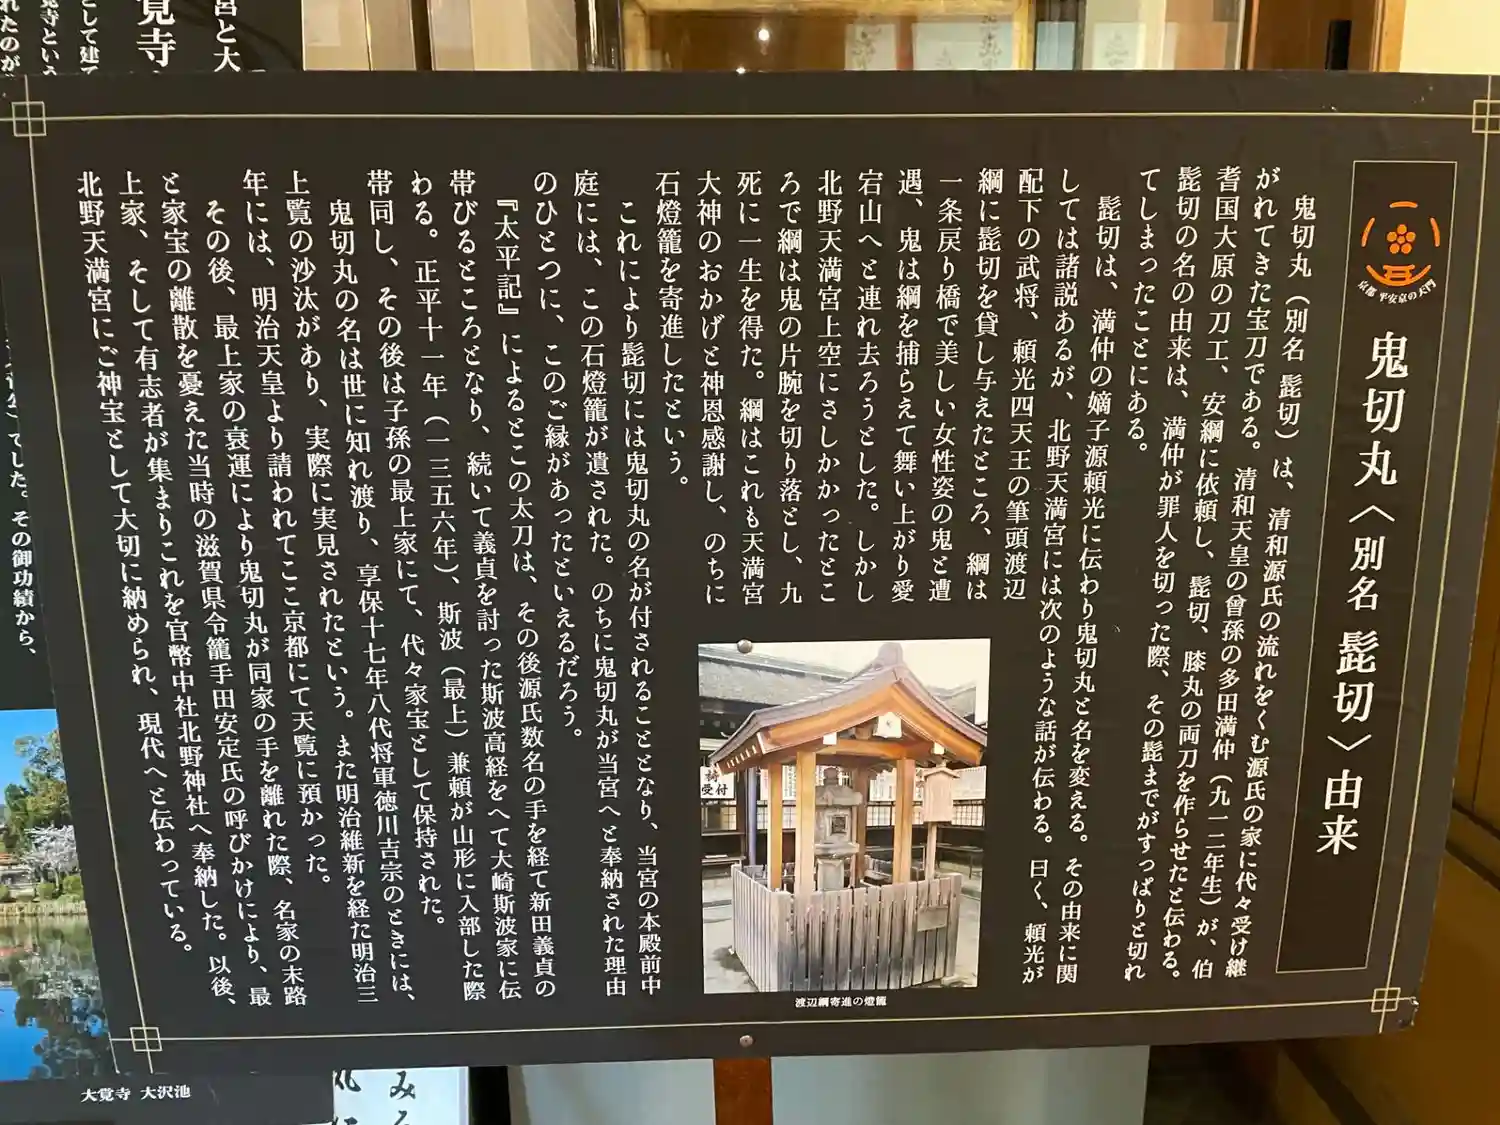 京都 平安京の天門
鬼切丸〈別名 髭切〉由来
鬼切丸（別名 髭切）は、清和源氏の流れをくむ源氏の家に代々受け継
がれてきた宝刀である。清和天皇の曾孫の多田満仲（九一二年生）が、伯
耆国大原の刀工、安綱に依頼し、髭切、膝丸の両刀を作らせたと伝わる。
髭切の名の由来は、満仲が罪人を切った際、その髭までがすっぱりと切れ
てしまったことにある。
髭切は、満仲の嫡子源頼光に伝わり鬼切丸と名を変える。その由来に関
しては諸説あるが、北野天満宮には次のような話が伝わる。曰く、頼光が
配下の武将、頼光四天王の筆頭渡辺
綱に髭切を貸し与えたところ、綱は
一条戻り橋で美しい女性姿の鬼と遭
遇、鬼は綱を捕らえて舞い上がり愛
宕山へと連れ去ろうとした。しかし
北野天満宮上空にさしかかったとこ
ろで綱は鬼の片腕を切り落とし、九
死に一生を得た。綱はこれも天満宮
大神のおかげと神恩感謝し、のちに
石燈籠を寄進したという。
これにより髭切には鬼切丸の名が付されることとなり、当宮の本殿前中
庭には、この石燈籠が遺された。のちに鬼切丸が当宮へと奉納された理由
のひとつに、このご縁があったといえるだろう。
『太平記』によるとこの太刀は、その後源氏数名の手を経て新田義貞の
帯びるところとなり、続いて義貞を討った斯波高経をへて大崎斯波家に伝
わる。正平十一年（一三五六年）、斯波（最上）兼頼が山形に入部した際
帯同し、その後は子孫の最上家にて、代々家宝として保持された。
鬼切丸の名は世に知れ渡り、享保十七年八代将軍徳川吉宗のときには、
上覧の沙汰があり、実際に実見されたという。また明治維新を経た明治三
年には、明治天皇より請われてここ京都にて天覧に預かった。
その後、最上家の衰運により鬼切丸が同家の手を離れた際、名家の末路
と家宝の離散を憂えた当時の滋賀県令籠手田安定氏の呼びかけにより、最
上家、そして有志者が集まりこれを官幣中社北野神社へ奉納した。以後、
北野天満宮にご神宝として大切に納められ、現代へと伝わっている。
受付
渡辺綱寄進の燈籠
宮と大
覚寺
として建て
覚寺という
れたのが
てした。その御功績から、
大覚寺 大沢池